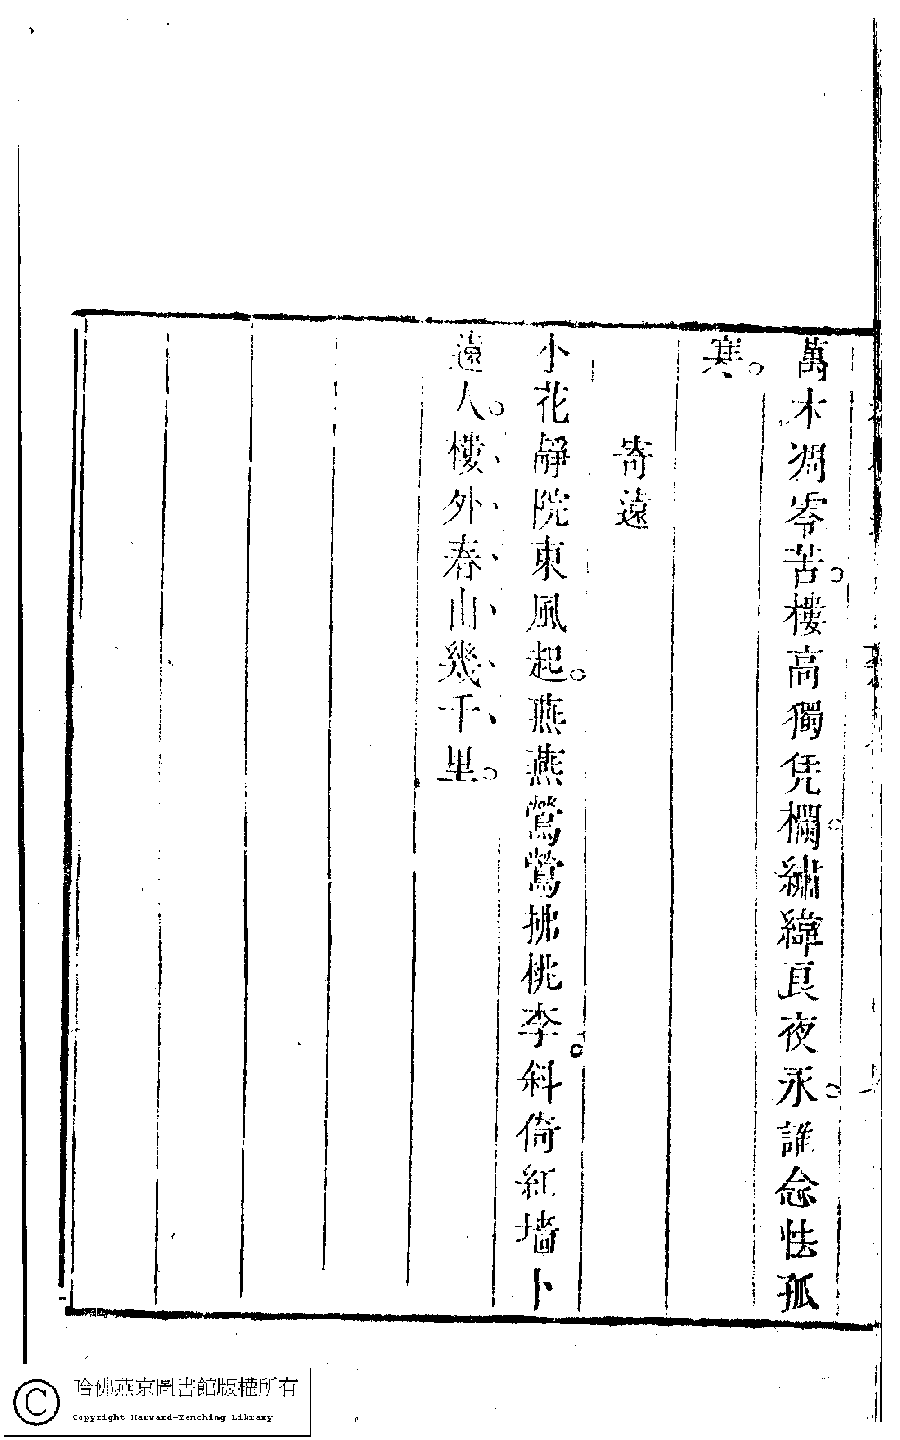 萬木凋零苦。樓高獨凭欄。繡緯良夜永。誰念怯孤
寒。
寄遠
小花靜院東風起。燕燕鶯鶯拂桃李。斜倚紅墻卜
遠人。樓外春山幾千里。
哈佛燕京圖書館版權所有
Copyright Harvard-Yenching Library